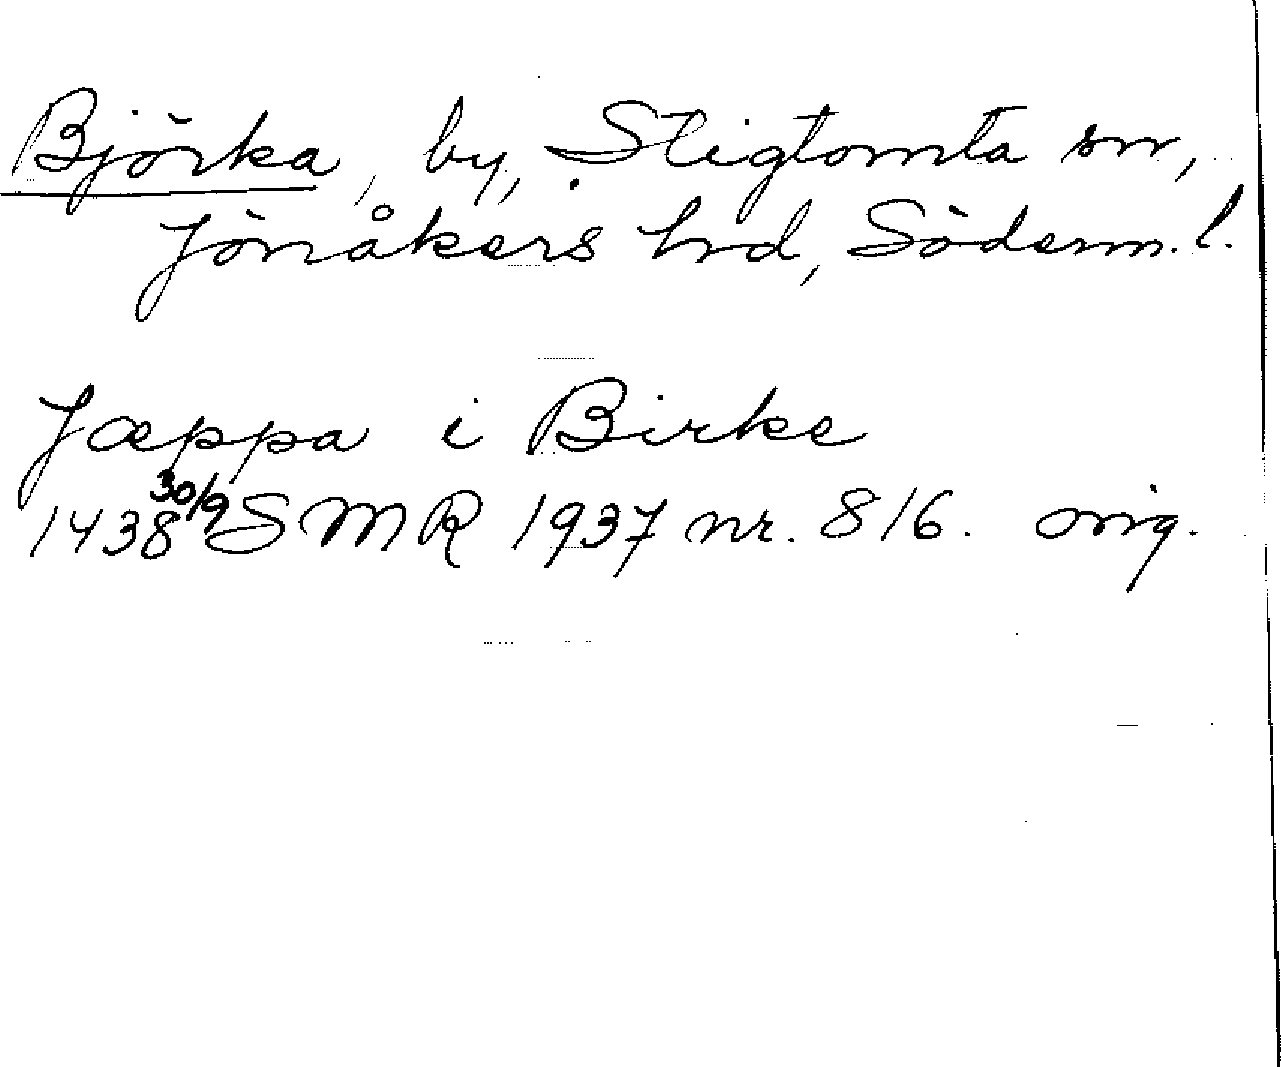 Björka, by, Stigtomta sn,
Jönåkers hrd, Söderm. l.
Jæppa i Birke
1438 30/9 SMR 1937 nr. 816. orig.